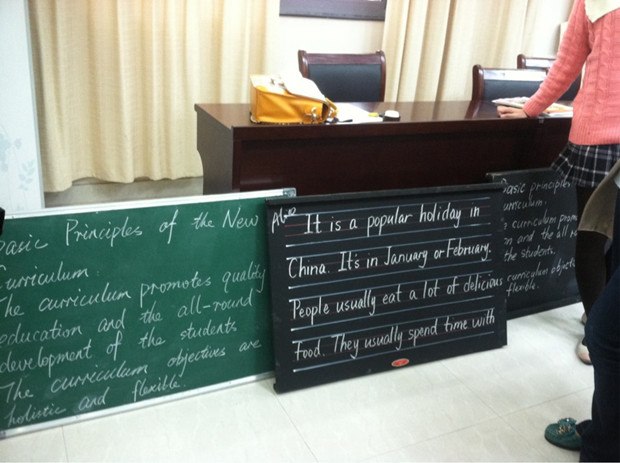 Basic Principles of the New
Curriculum.
The curriculum promotes quality
education and the all-round
development of the students
The curriculum objectives are
holistic and flexible.
It is a popular holiday in
China. It's in January or February.
People usually eat a lot of delicious
Food. They usually spend time with
Basic principles
curriculum:
curriculum prom
on and the all
the students.
curriculum object
flexible.